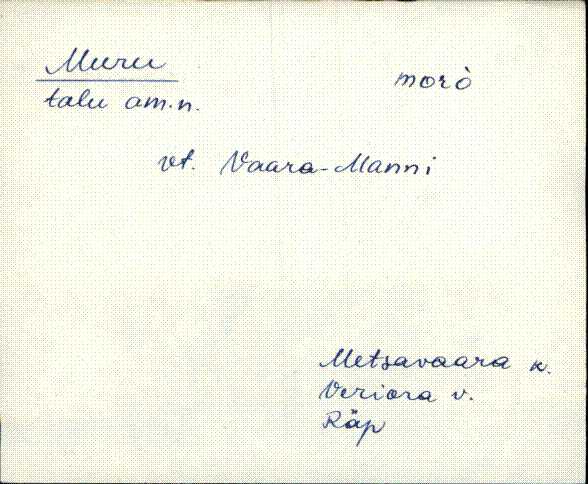 Muru
morò
talu am.n.
vt. Vaara-Manni
Metsavaara k.
Veriora v.
Räp